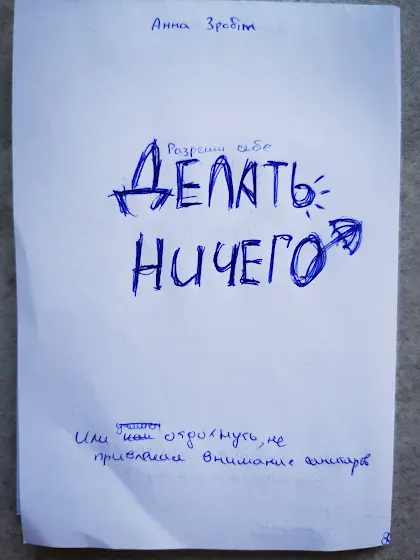 Анна Зробім
Разреши себе
ДЕЛАТЬ
НИЧЕГО
Или отдохнуть, не
привлекая внимание санитаров